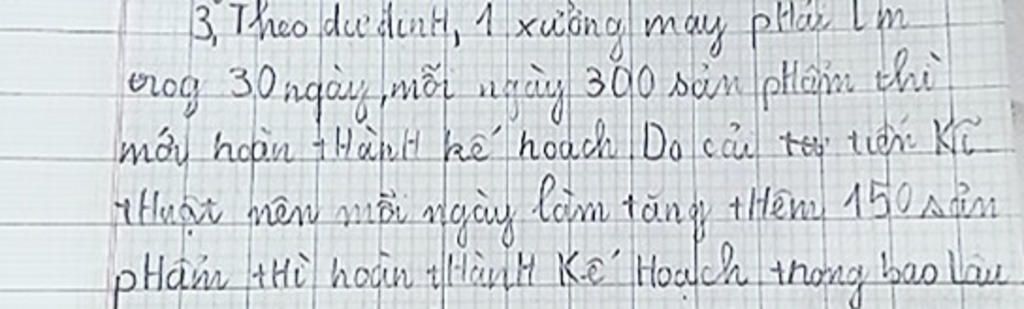 3, Theo dự định, 1 xưởng may phải lm
trog 30 ngày, mỗi ngày 300 sản phẩm thì
mới hoàn tHànH kế hoạch Do cải tiến Kĩ
tHuật nên mỗi ngày làm tăng tHêm 150 sản
pHẩm tHì hoàn tHànH Kế Hoạch trong bao lâu